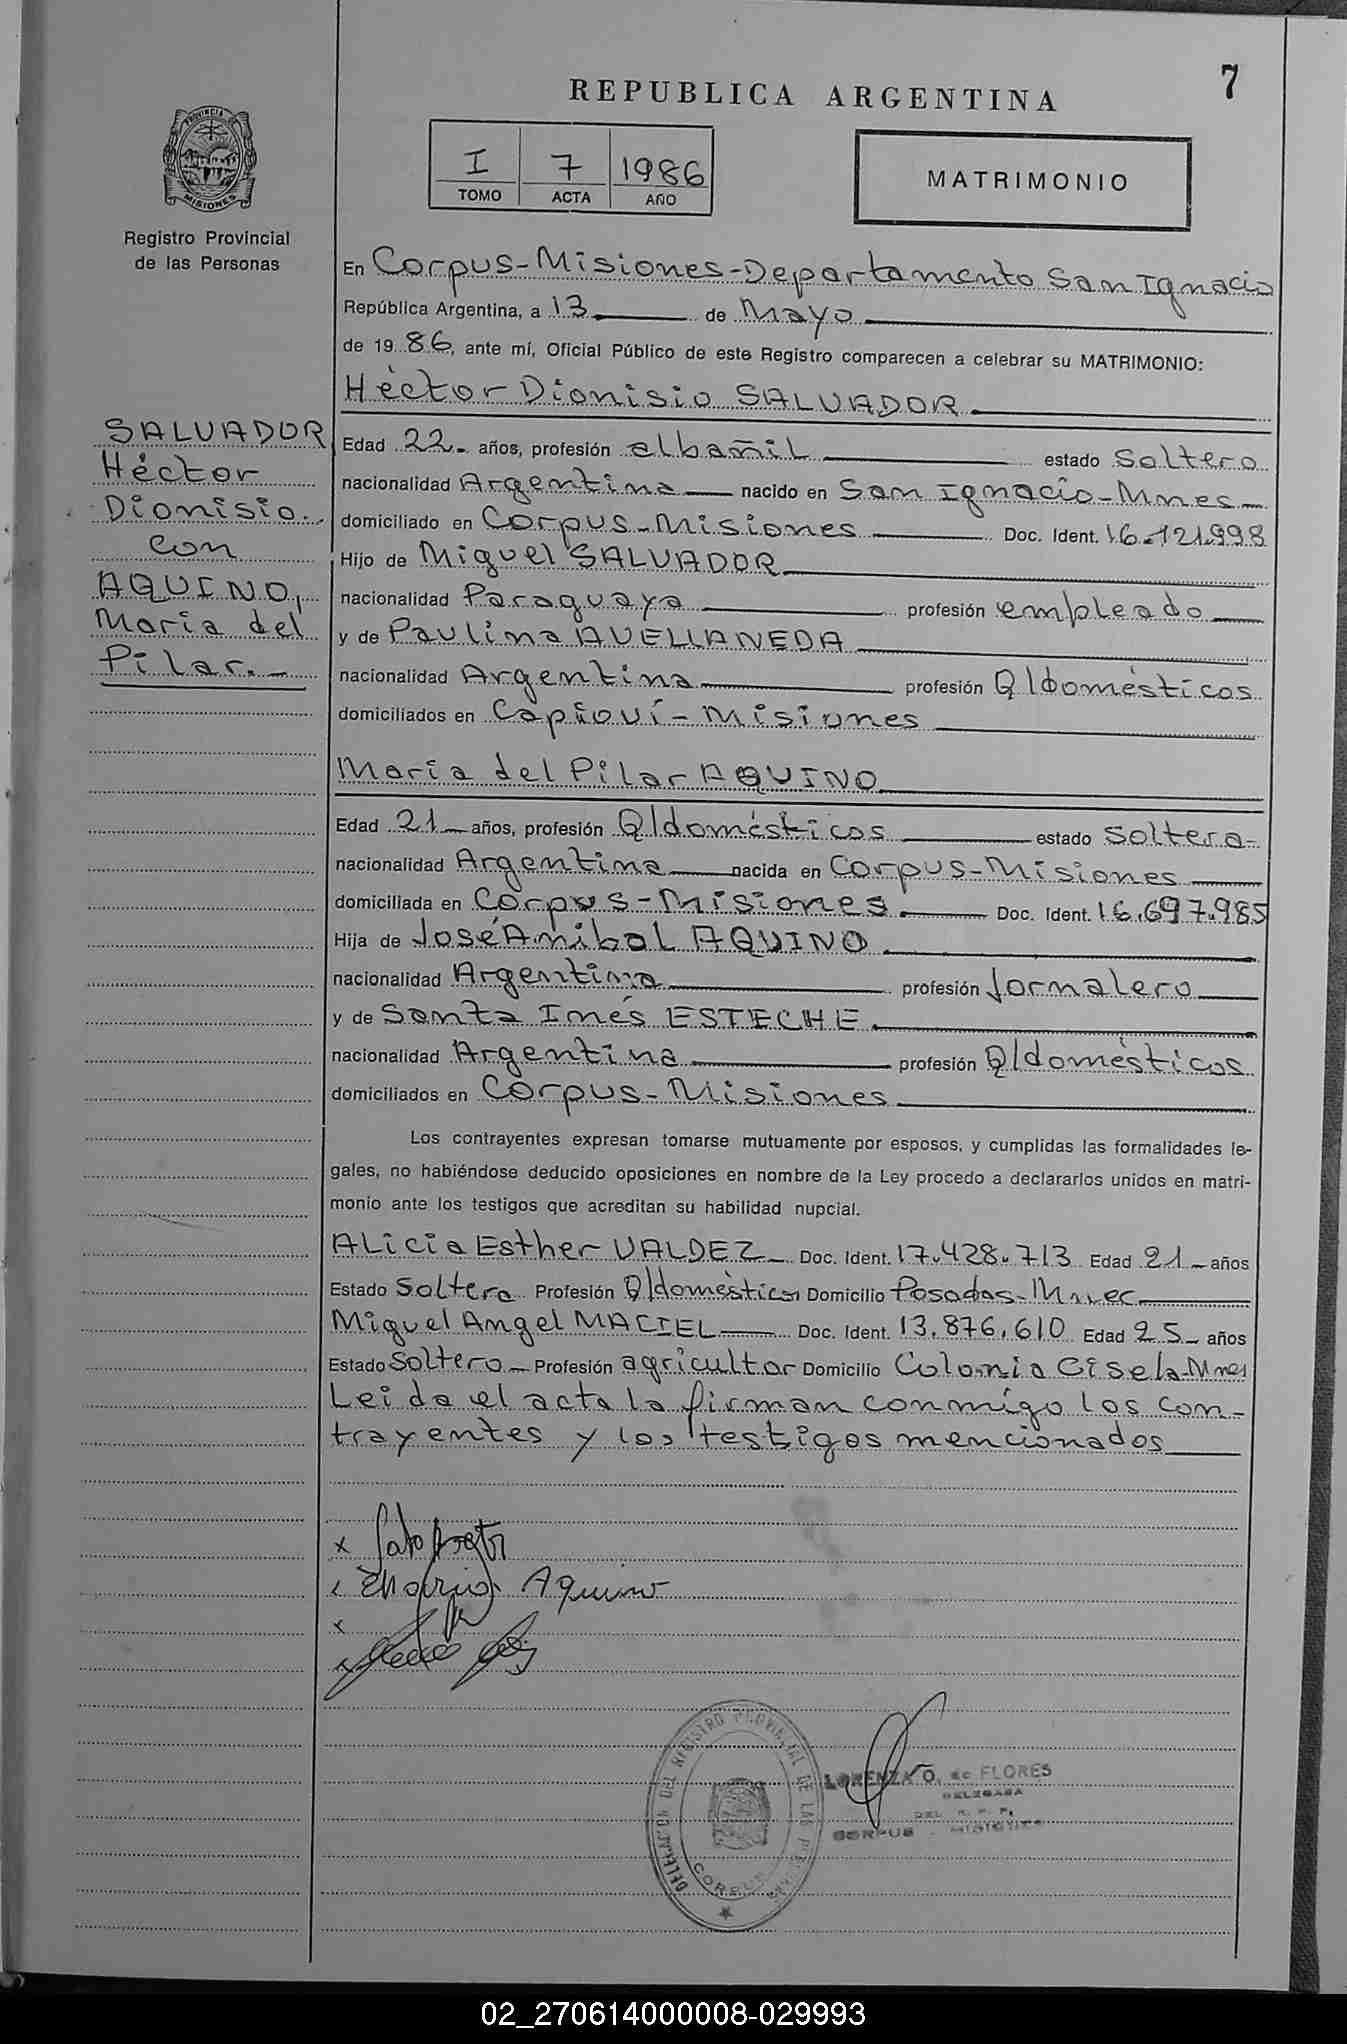 7
REPUBLICA ARGENTINA
I 7 1986
TOMO ACTA AÑO
MATRIMONIO
PROVINCIA DE
MISIONES
Registro Provincial
de las Personas
SALVADOR
Héctor
Dionisio.
con
AQUINO,
María del
Pilar.-
En Corpus-Misiones-Departamento San Ignacio
República Argentina, a 13 de Mayo
de 1986, ante mí, Oficial Público de este Registro comparecen a celebrar su MATRIMONIO:
Héctor Dionisio SALVADOR
Edad 22- años, profesión albañil estado Soltero
nacionalidad Argentina nacido en San Ignacio-Mnes-
domiciliado en Corpus-Misiones Doc. Ident. 16.121.998
Hijo de Miguel SALVADOR
nacionalidad Paraguaya profesión empleado
y de Paulina AVELLANEDA
nacionalidad Argentina profesión Q/domésticos
domiciliados en Capioví-Misiones
María del Pilar AQUINO
Edad 21 años, profesión Q/domésticos estado Soltera-
nacionalidad Argentina nacida en Corpus-Misiones
domiciliada en Corpus-Misiones Doc. Ident. 16.697.985
Hija de José Anibal AQUINO
nacionalidad Argentina profesión Jornalero
y de Santa Inés ESTECHE
nacionalidad Argentina profesión Q/domésticos
domiciliados en Corpus-Misiones
Los contrayentes expresan tomarse mutuamente por esposos, y cumplidas las formalidades le-
gales, no habiéndose deducido oposiciones en nombre de la Ley procedo a declararlos unidos en matri-
monio ante los testigos que acreditan su habilidad nupcial.
Alicia Esther VALDEZ Doc. Ident. 17.428.713 Edad 21 años
Estado Soltera Profesión Q/domésticos Domicilio Posadas-Mnes
Miguel Angel MACIEL Doc. Ident. 13.876.610 Edad 25 años
Estado Soltero Profesión agricultor Domicilio Colonia Gisela-Mnes
Leida el acta la firman conmigo los con-
trayentes y los testigos mencionados
Aquino
DELEGACION DEL REGISTRO PROVINCIAL DE LAS PERSONAS
CORPUS
LORENZA O. de FLORES
DELEGADA
DEL R. P. P.
CORPUS - MISIONES
02_270614000008-029993